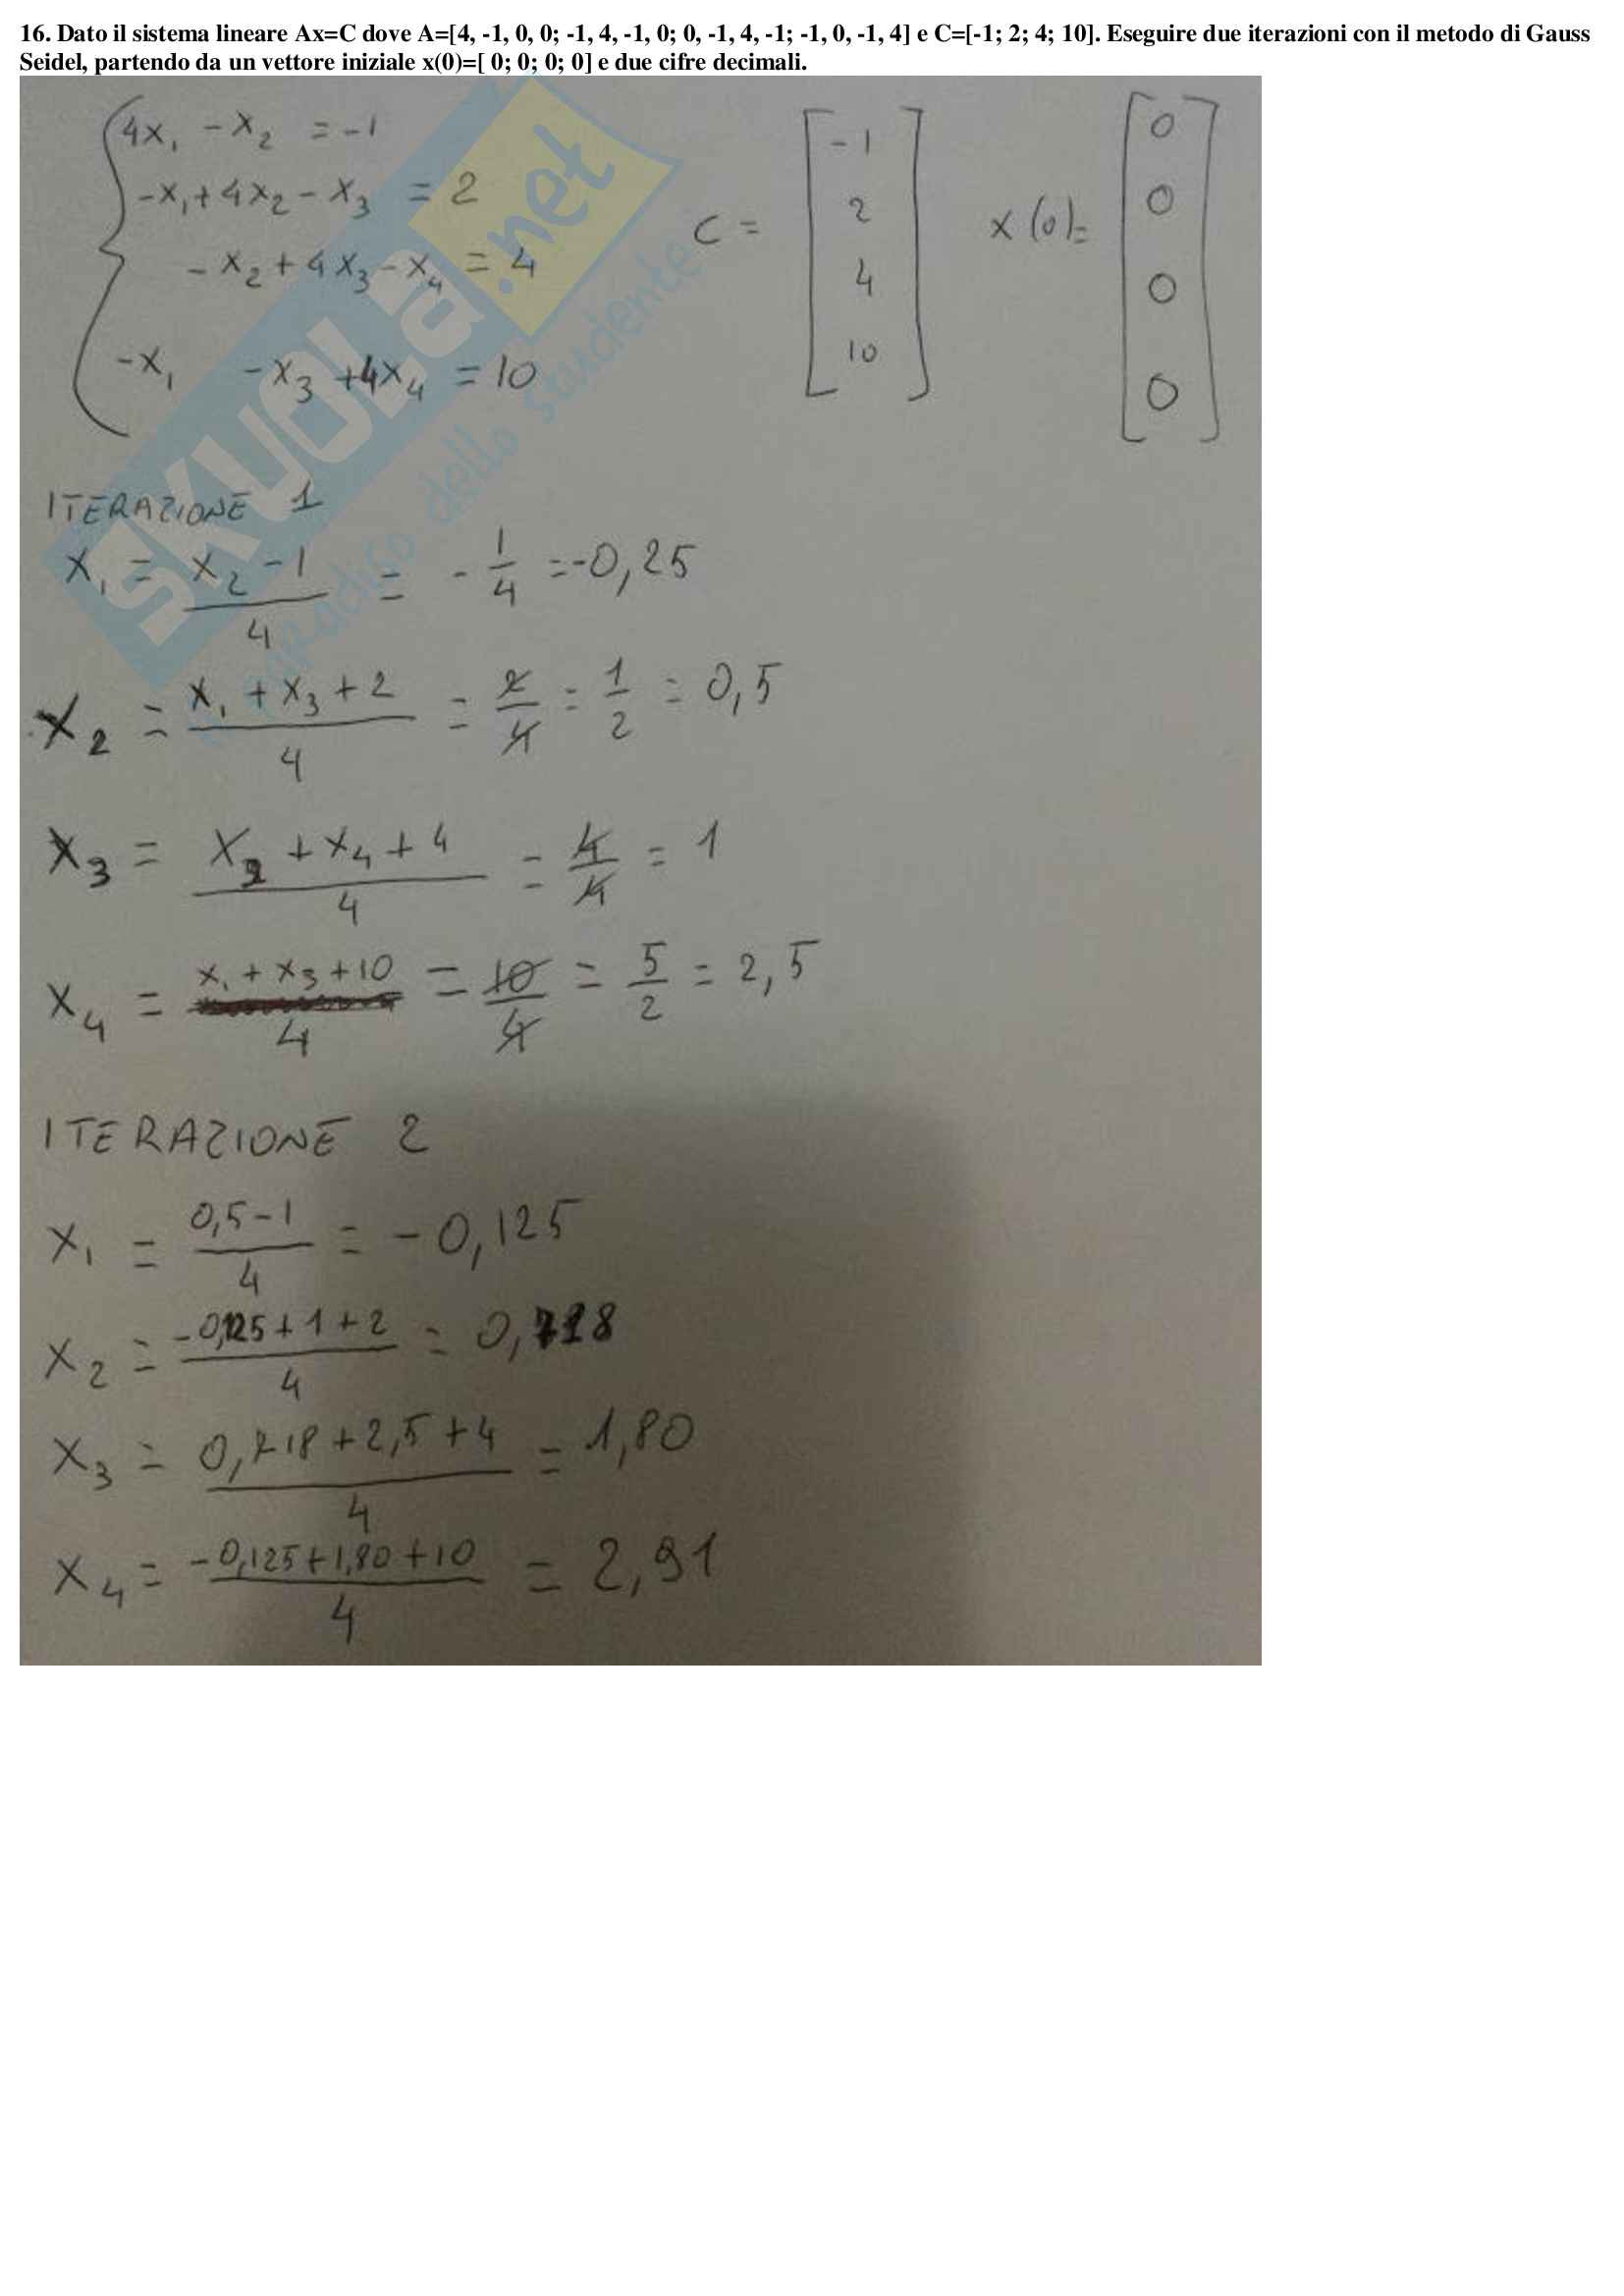 16. Dato il sistema lineare Ax=C dove A=[4, -1, 0, 0; -1, 4, -1, 0; 0, -1, 4, -1; -1, 0, -1, 4] e C=[-1; 2; 4; 10]. Eseguire due iterazioni con il metodo di Gauss
Seidel, partendo da un vettore iniziale x(0)=[ 0; 0; 0; 0] e due cifre decimali.
4x₁ - x₂ = -1
-x₁ + 4x₂ - x₃ = 2
- x₂ + 4x₃ - x₄ = 4
-x₁ - x₃ + 4x₄ = 10
C = [-1 2 4 10]
x(0)= [0 0 0 0]
SKUOLA.net
paradiso dello studente
ITERAZIONE 1
x₁ = (x₂ - 1)/4 = - 1/4 = -0,25
x₂ = (x₁ + x₃ + 2)/4 = 2/4 = 1/2 = 0,5
x₃ = (x₂ + x₄ + 4)/4 = 4/4 = 1
x₄ = (x₁ + x₃ + 10)/4 = 10/4 = 5/2 = 2,5
ITERAZIONE 2
x₁ = (0,5 - 1)/4 = - 0,125
x₂ = (-0,125 + 1 + 2)/4 = 0,718
x₃ = (0,718 + 2,5 + 4)/4 = 1,80
x₄ = (-0,125 + 1,80 + 10)/4 = 2,91